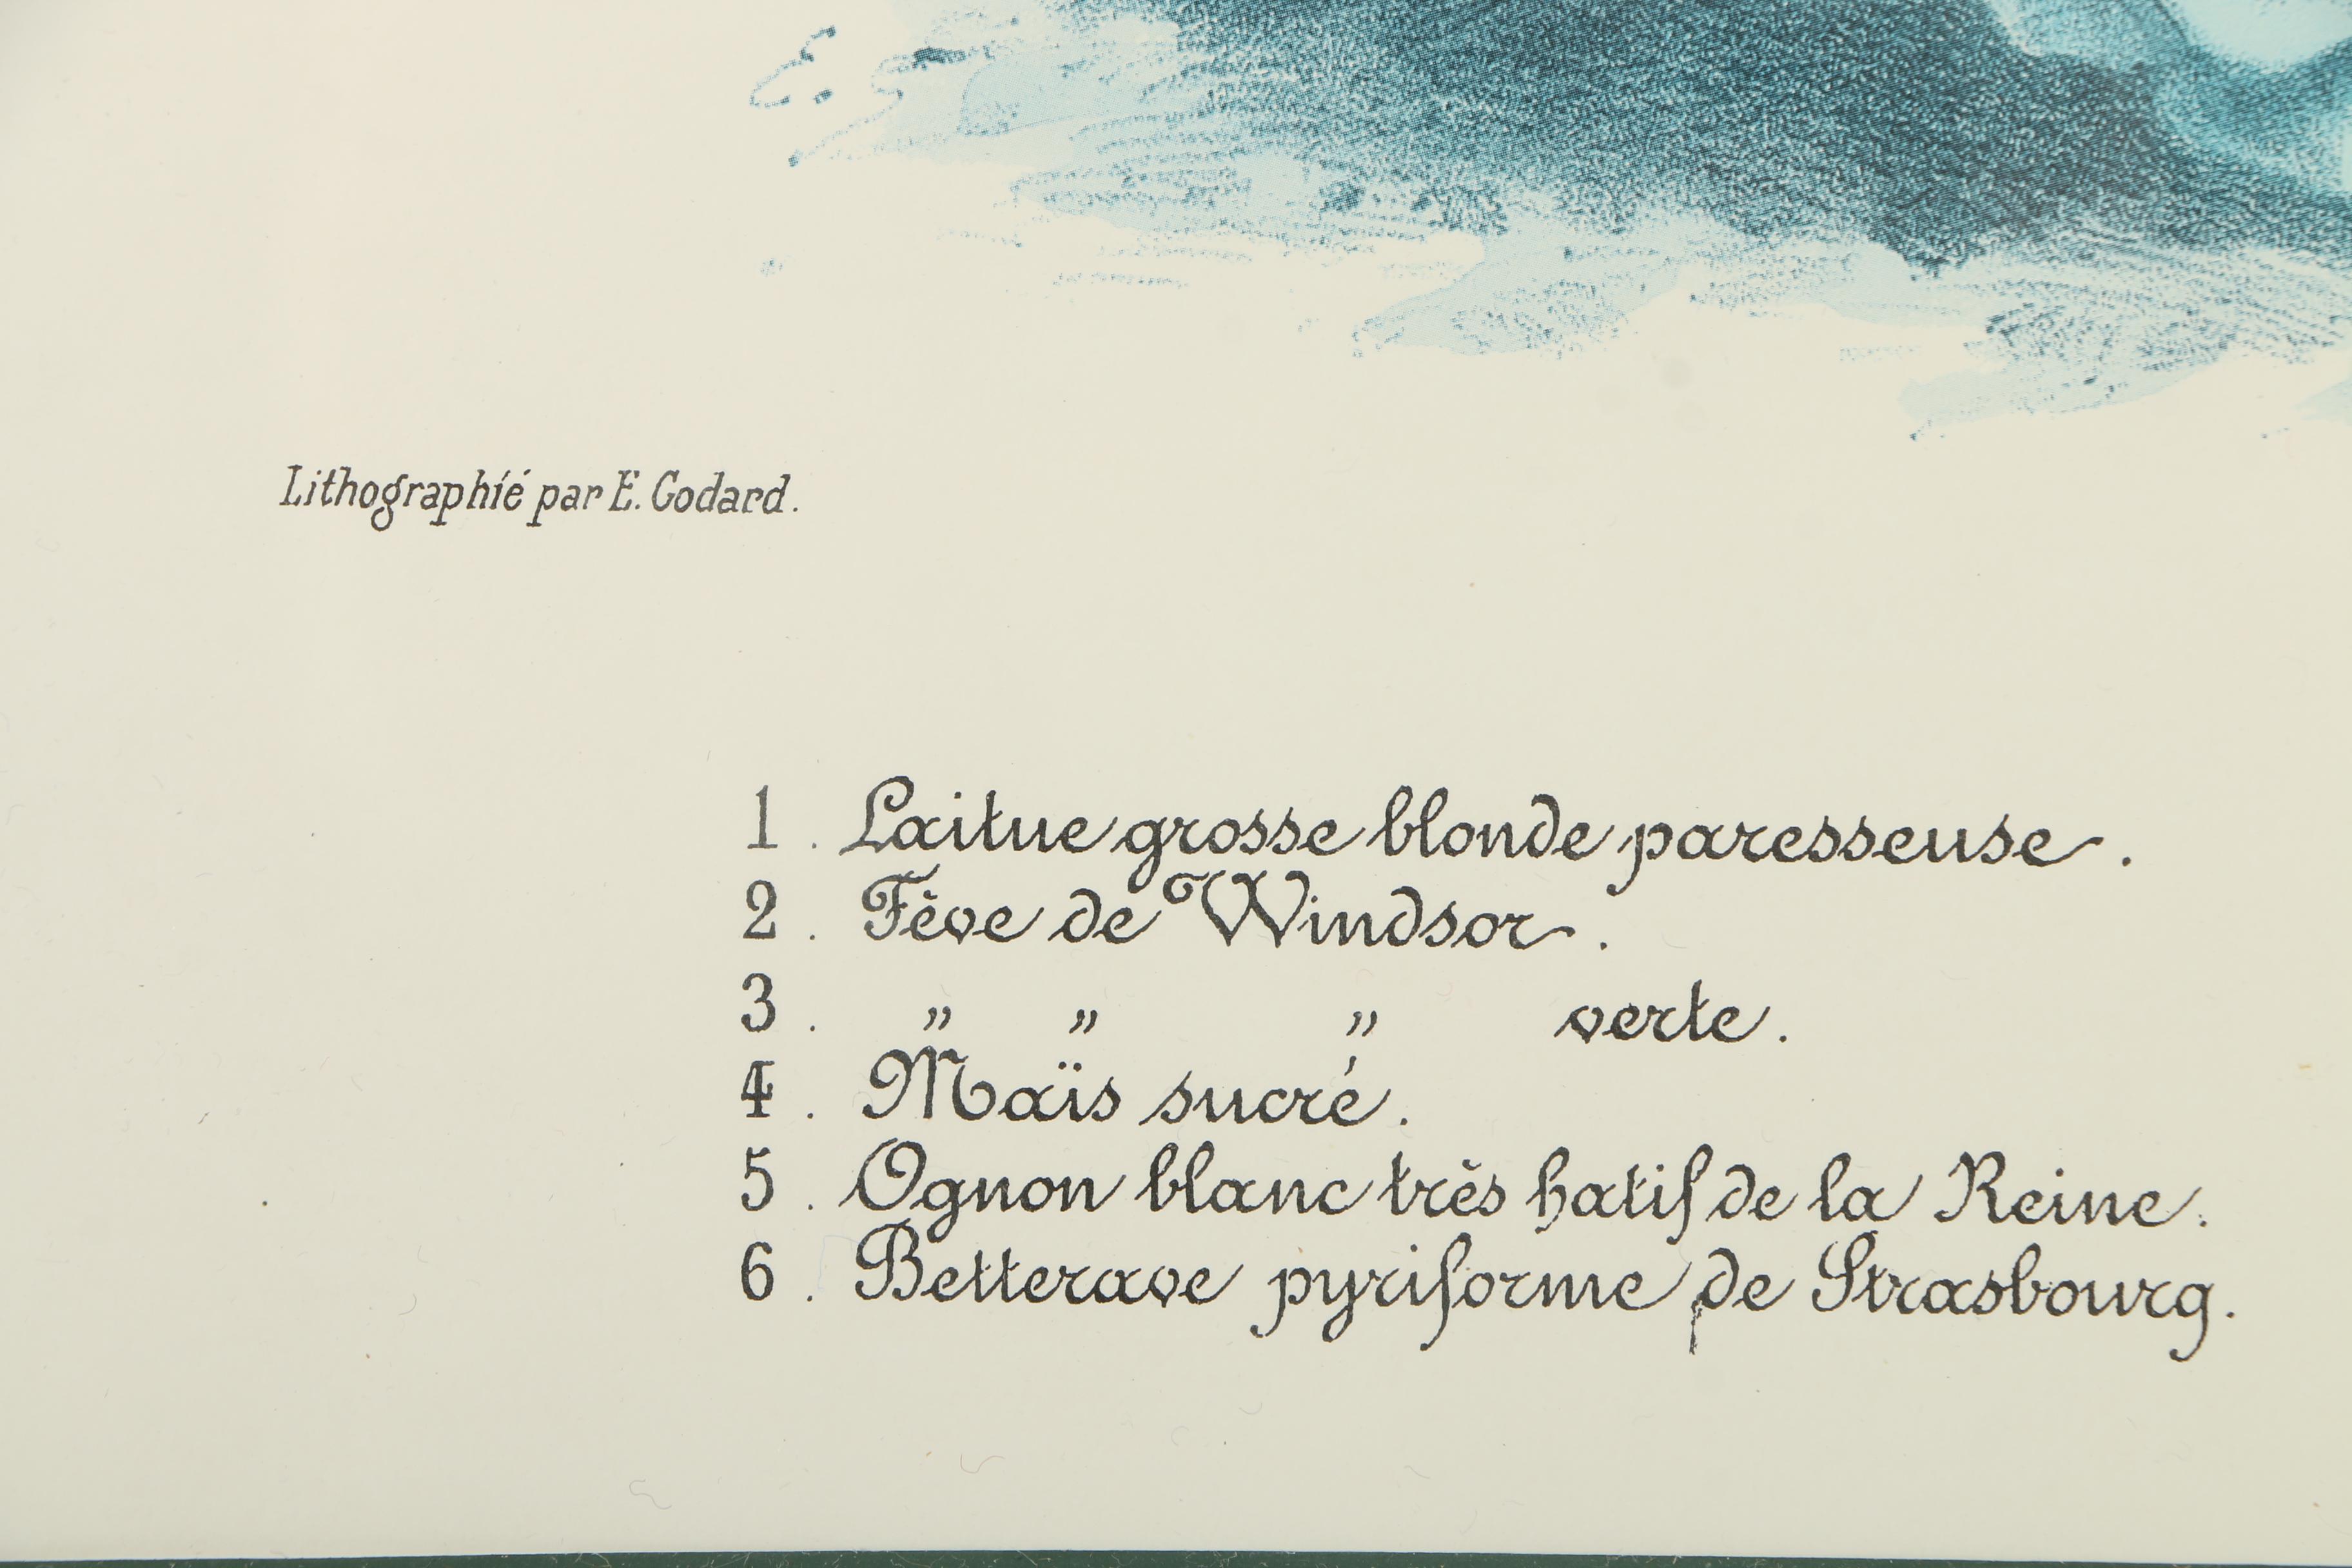 E. G
Lithographié par E. Godard.
1 . Laitue grosse blonde paresseuse .
2 . Fève de Windsor .
3 . „ „ „ verte .
4 . Maïs sucré .
5 . Ognon blanc très hatif de la Reine .
6 . Betterave pyriforme de Strasbourg .